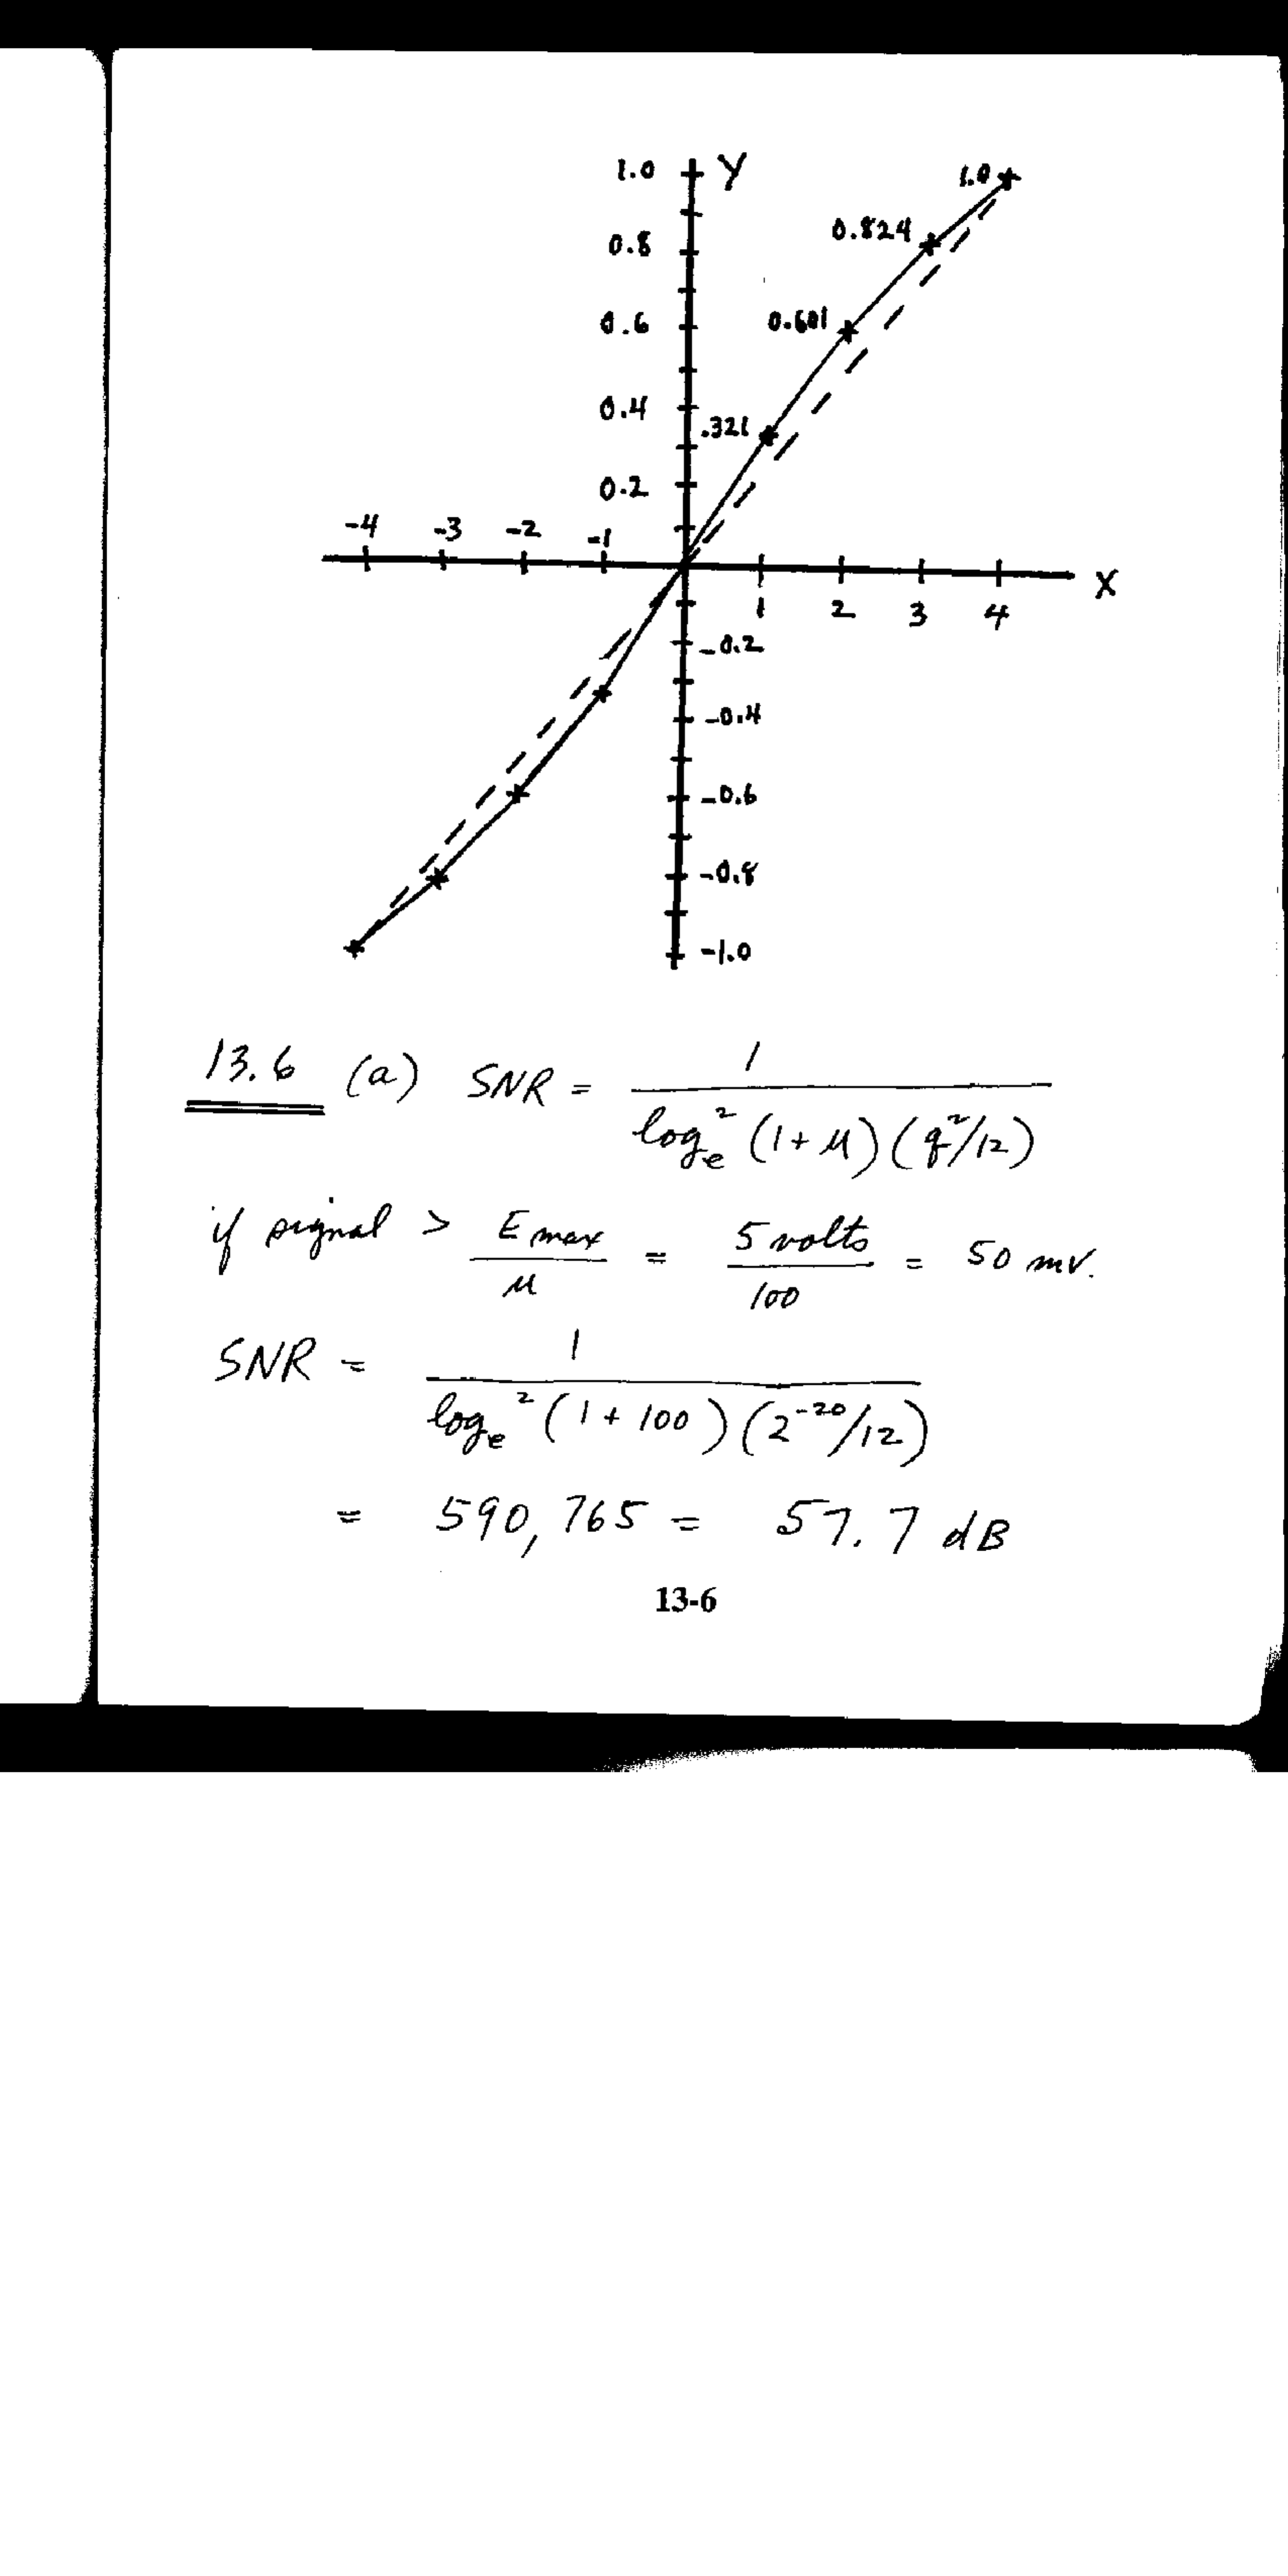 1.0 Y 1.0
0.824
0.8
0.6 0.601
0.4 .321
0.2
-4 -3 -2 -1
X
1 2 3 4
-0.2
-0.4
-0.6
-0.8
-1.0
13.6 (a) SNR = 1 / log_e^2 (1 + μ) (q^2/12)
if signal > E max / μ = 5 volts / 100 = 50 mv.
SNR = 1 / log_e^2 (1 + 100) (2^-20/12)
= 590,765 = 57.7 dB
13-6